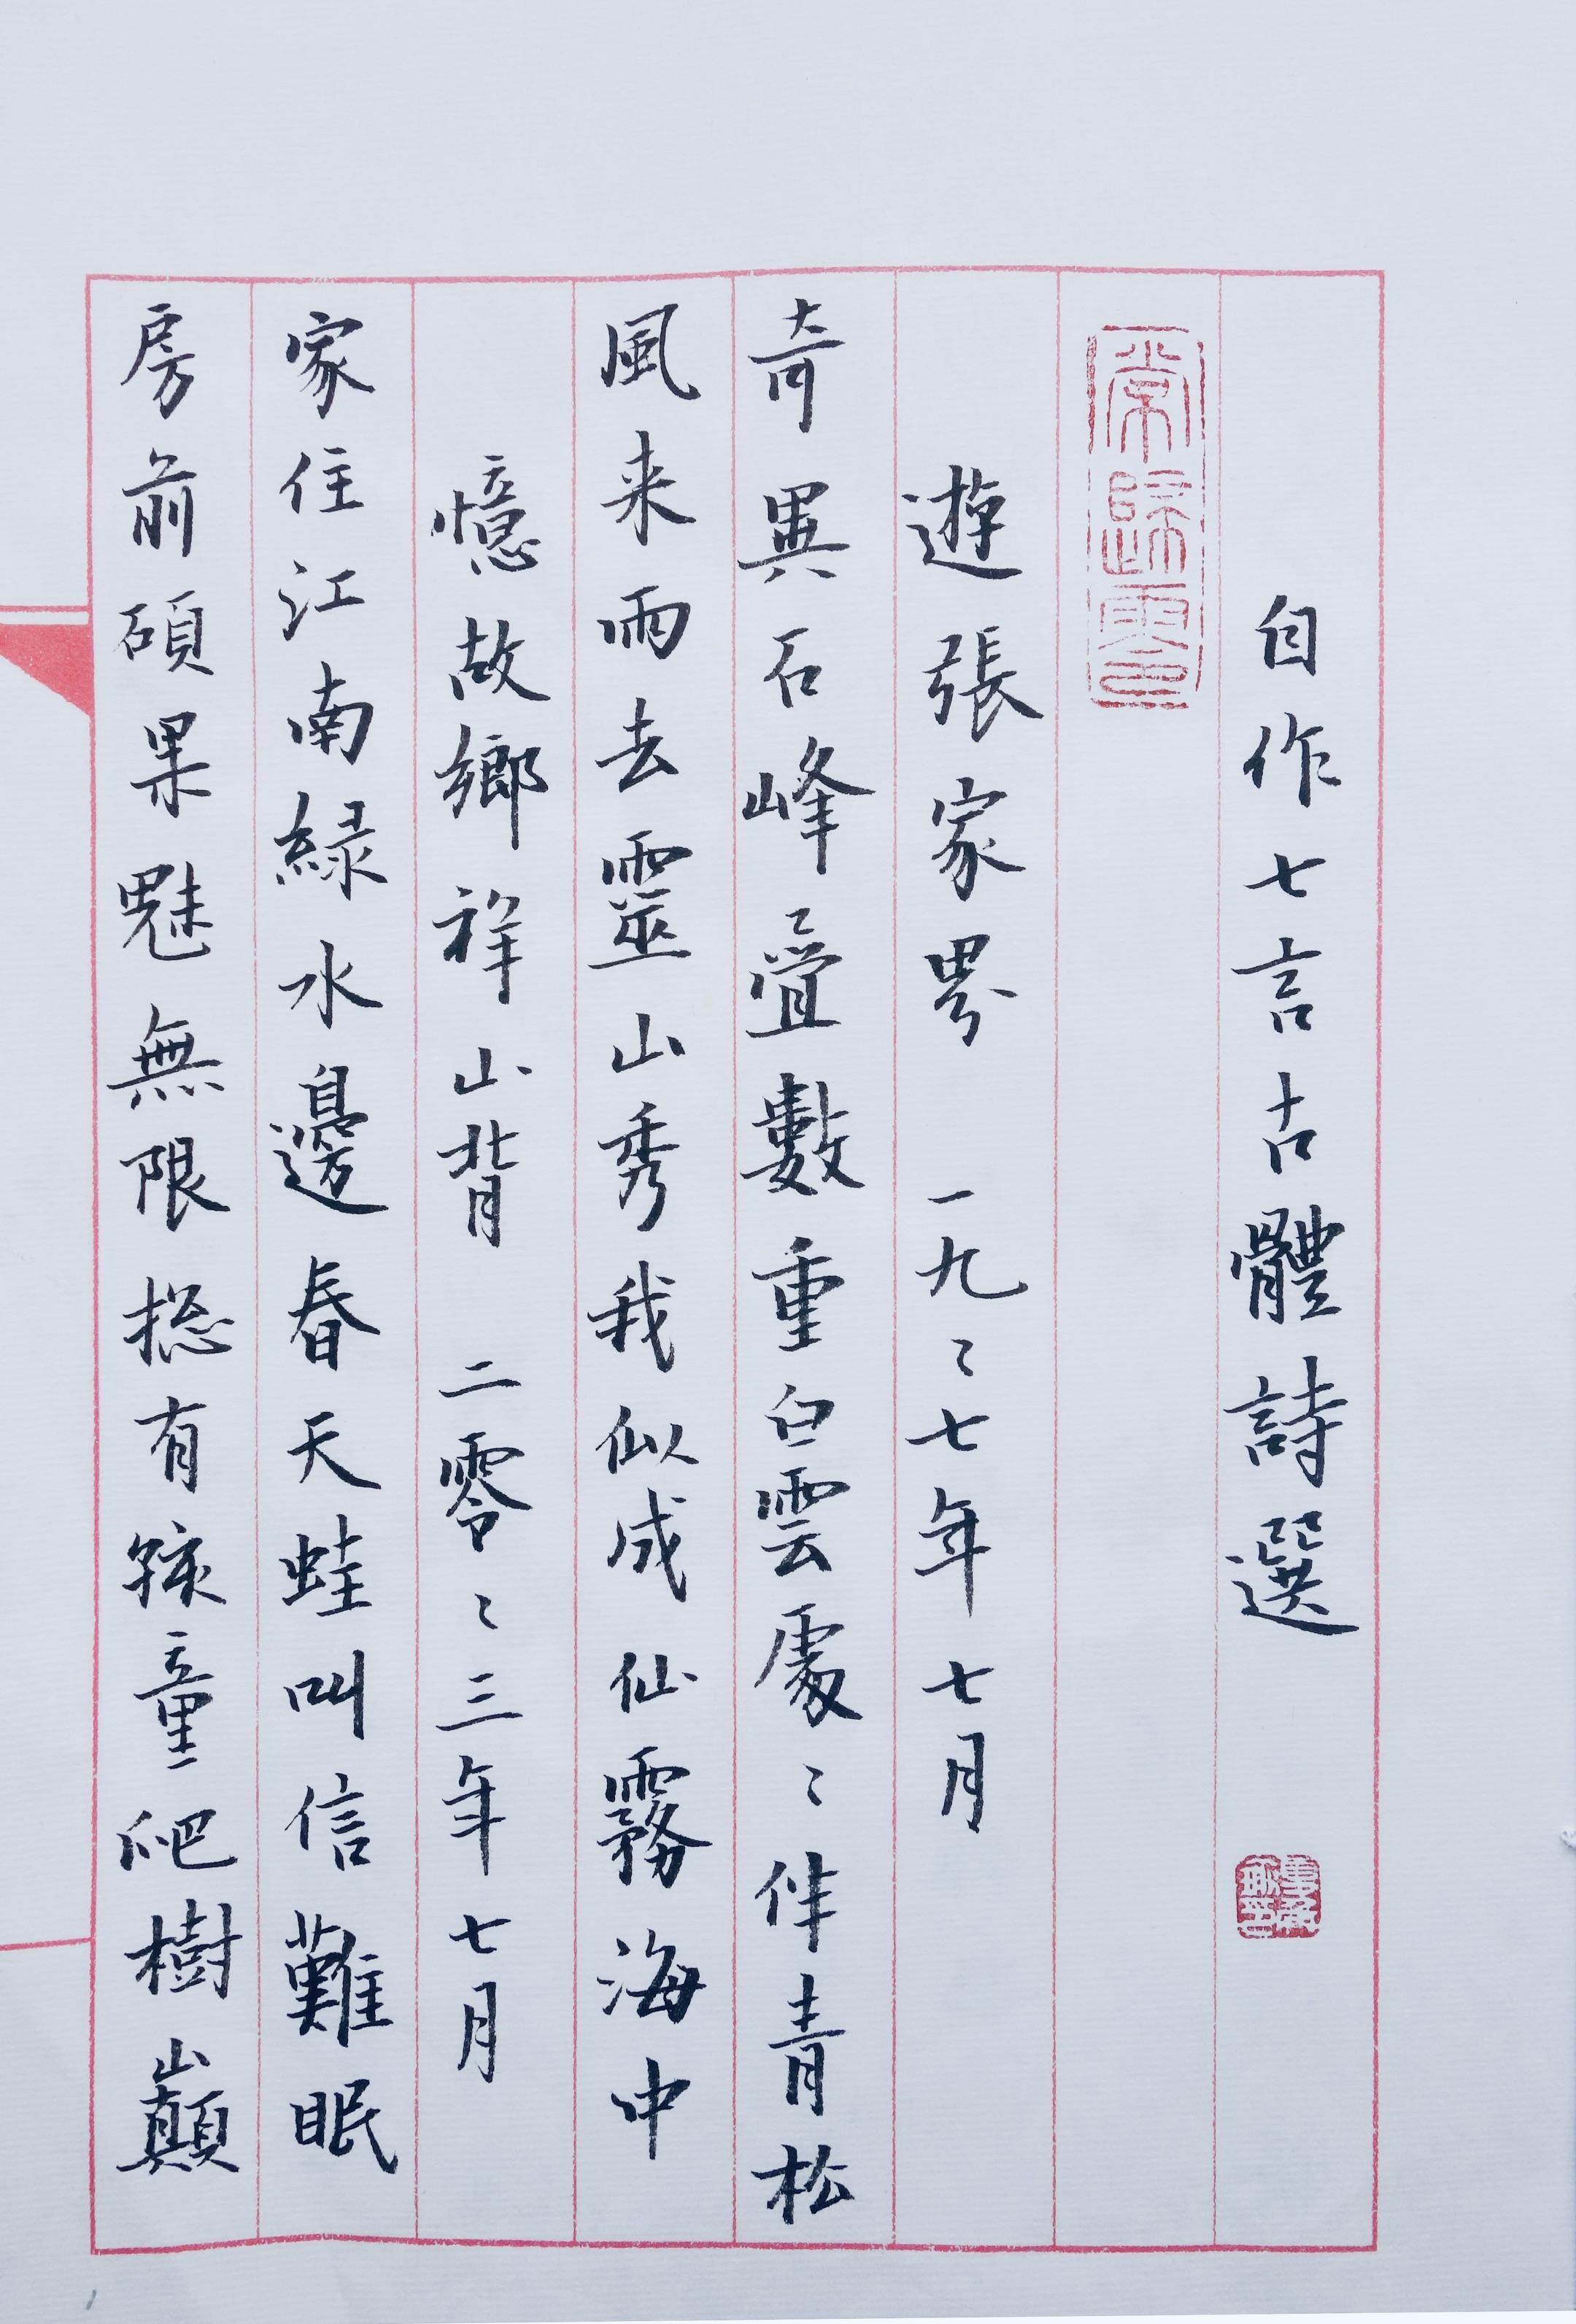 自作七言古體詩選
遊張家界 一九〻七年七月
奇異石峰疊數重白雲處〻伴青松
風来雨去靈山秀我似成仙霧海中
憶故鄉祥山背 二零〻三年七月
家住江南緑水邊春天蛙叫信難眠
房前碩果魅無限揔有孩童爬樹巔